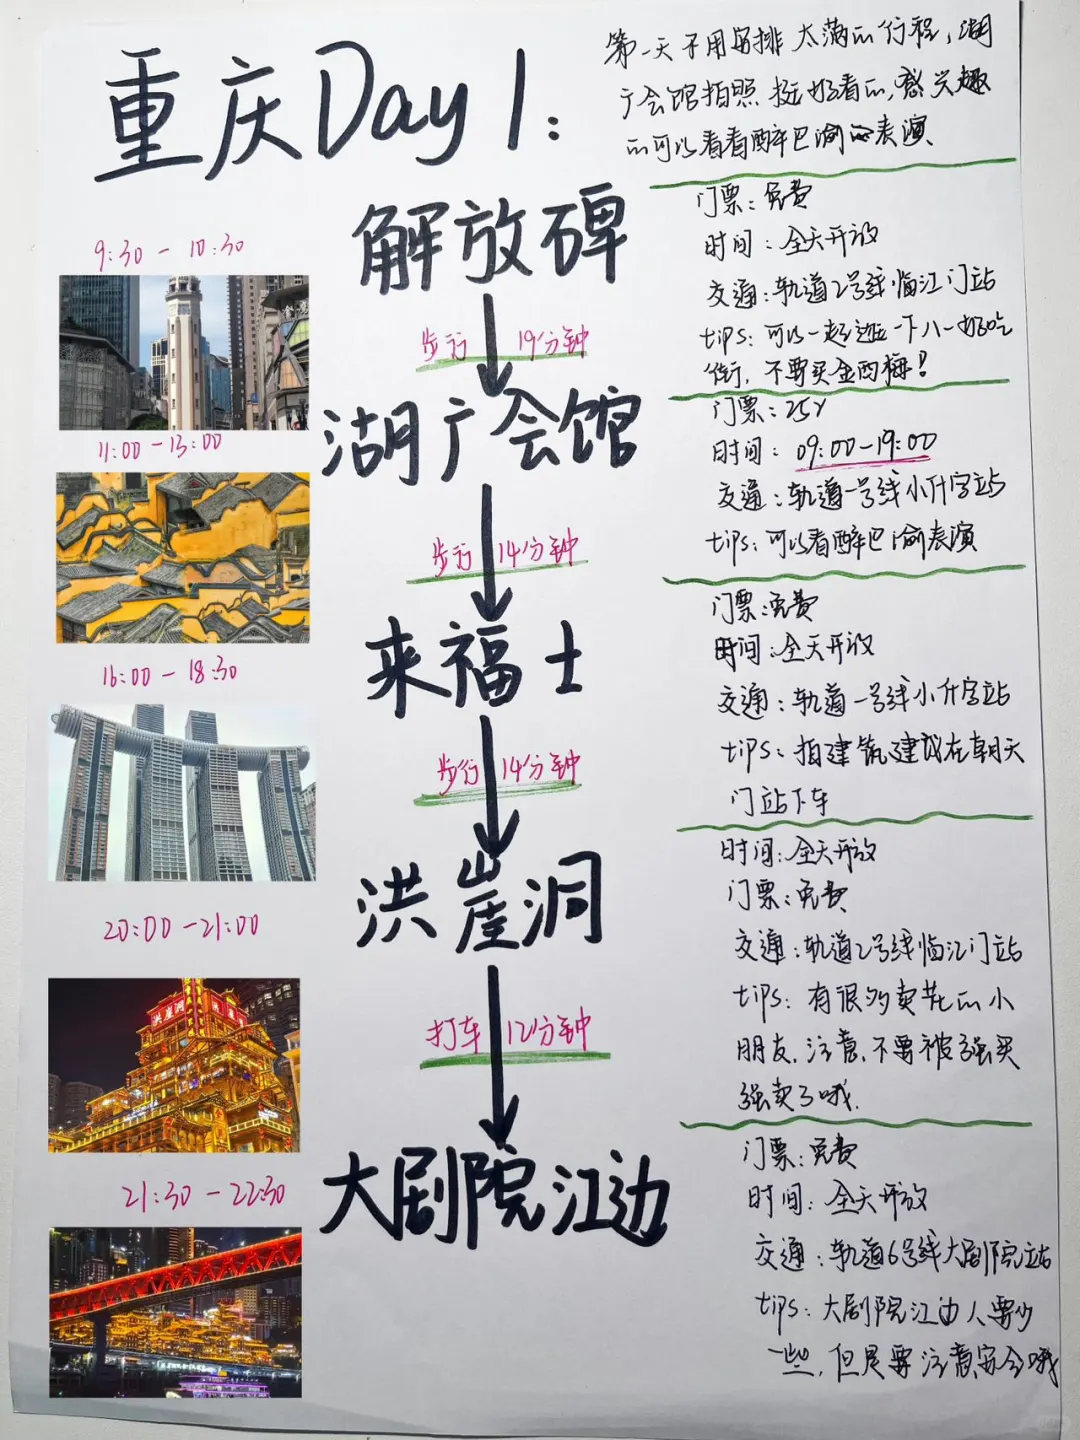 重庆Day1:
第一天不用安排太满的行程,湖
广会馆拍照挺好看的,感兴趣
的可以看看醉巴渝的表演
9:30-10:30
解放碑
门票:免费
时间:全天开放
交通:轨道2号线临江门站
tips:可以一起逛一下八一好吃
街,不要买金西梅!
步行 19分钟
11:00-13:00
湖广会馆
门票:25¥
时间:09:00-19:00
交通:轨道一号线小什字站
tips:可以看醉巴渝表演
步行 14分钟
16:00-18:30
来福士
门票:免费
时间:全天开放
交通:轨道一号线小什字站
tips:拍建筑建议在朝天
门站下车
步行 14分钟
20:00-21:00
洪崖洞
时间:全天开放
门票:免费
交通:轨道2号线临江门站
tips:有很多卖花的小
朋友,注意,不要被强买
强卖了哦.
洪崖洞
打车 12分钟
21:30-22:30
大剧院江边
门票:免费
时间:全天开放
交通:轨道6号线大剧院站
tips:大剧院江边人要少
一些,但是要注意安全哦